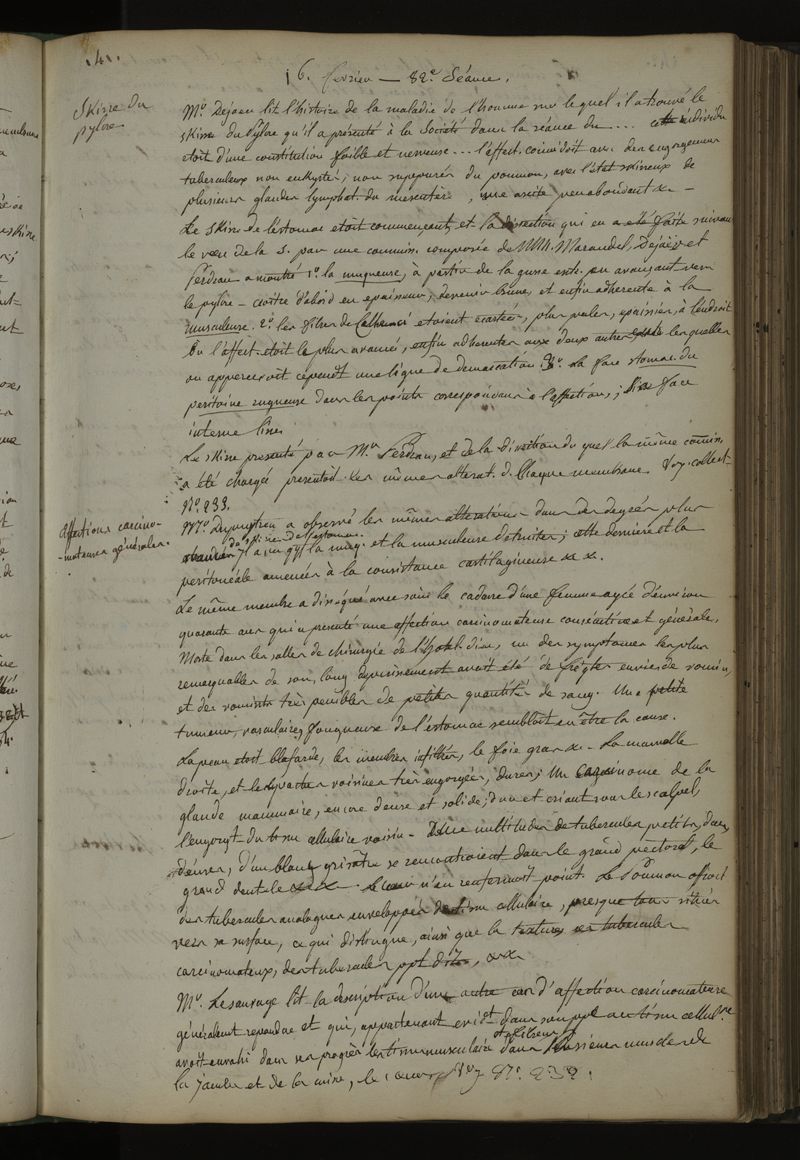 4.
16. fevrier — 82e Séance.
Skirre du
pylore
Mr. Dejaer lit l'histoire de la maladie de l'homme sur lequel il a trouvé le
skirre du Pylore qu'il a présenté à la Société dans la séance du ... cette individu
etoit d'une constitution faible et nerveuse ... l'affect. coincidoit avec des engorgemens
tuberculeux non enkystés, non suppurés du poumon, avec l'état skirreux de
plusieurs glandes lymphat. du mesentère, une ascite peu abondant &. —
Le skirre de l'estomac etoit commençant, et la dissection qui en a eté faite suivant
le vœu de la S. par une commiss. composée de MM. Marandel, Dejaer et
Ferdeau a montré 1o. la muqueuse, à partir de la en avançant vers
le pylore — croitre d'abord en epaisseur, devenir brune, et enfin adherente à la
musculeuse. 2o. les fibres de etoient ecartées, plus pales, epaissies, à l'endroit
Ou l'affect. etoit le plus avancé, enfin adherentes aux deux autres lesquelles
on appercevoit cepend.t une ligne de demarcation 3o. la face stomac. du
peritoine rugueuse dans les points correspondans à l'affection; face
interne lisse.
Le skirre presenté par Mr. Ferdeau, et de la dissection du quel la même commiss.
a été chargée presentoit les mêmes alterat. d. chaque membrane. Voy. collect.
No. 233.
Affections carcino-
-mateuses générales.
Mr. Dupuytren a observé les mêmes alterations dans des degrés plus
avancés du skirre de l'estomac. Il a vu la muq. et la musculeuse detruites; cette derniere et la
peritonéale amenées à la consistance cartilagineuse & &.
Le même membre a disséqué avec soin le cadavre d'une femme agée d'environ
quarante ans qui a presenté une affection carcinomateuse consécutive et générale,
Morte dans les salles de chirurgie de l'hotel dieu, un des symptomes les plus
remarquables de son long deperissement avoit été de freqtes. envies de vomir,
et des vomissts. très penibles de petites quantités de sang. Une petite
tumeur, vasculaire, fongueuse de l'estomac sembloit en être la cause.
La peau etoit blafarde, les membres infiltrés, le foie gras &. — La mamelle
droite, et les parties voisines très engorgées, dures; Un carcinome de la
glande mammaire, encore dense et solide; dur et criant sous le scalpel,
l'engorgt. du tissu cellulaire voisin. — Une multitude de tubercules petits, durs,
denses, d'un blanc grisâtre se rencontroient dans le grand pectoral, le
grand dentelé &. &. & le cœur n'en renfermoit point. Le Poumon offroit
des tubercules analogues enveloppés de tissu cellulaire, presque tous situés
vers sa surface, ce qui distingue, ainsi que la texture, ces tubercules
carcinomateux, des tubercules ppt. dits, &.
Mr. Lesauvage lit la description d'une autre cas d'affection carcinomateuse
généralement repandue et qui, appartenant evidt. dans son ppe. au tissu cellulre.
avoit envahi dans ses progrès les tissus musculaire et fibreux dans plusieurs muscles de
la jambe et de la cuisse, le cœur, Voy No. 232.